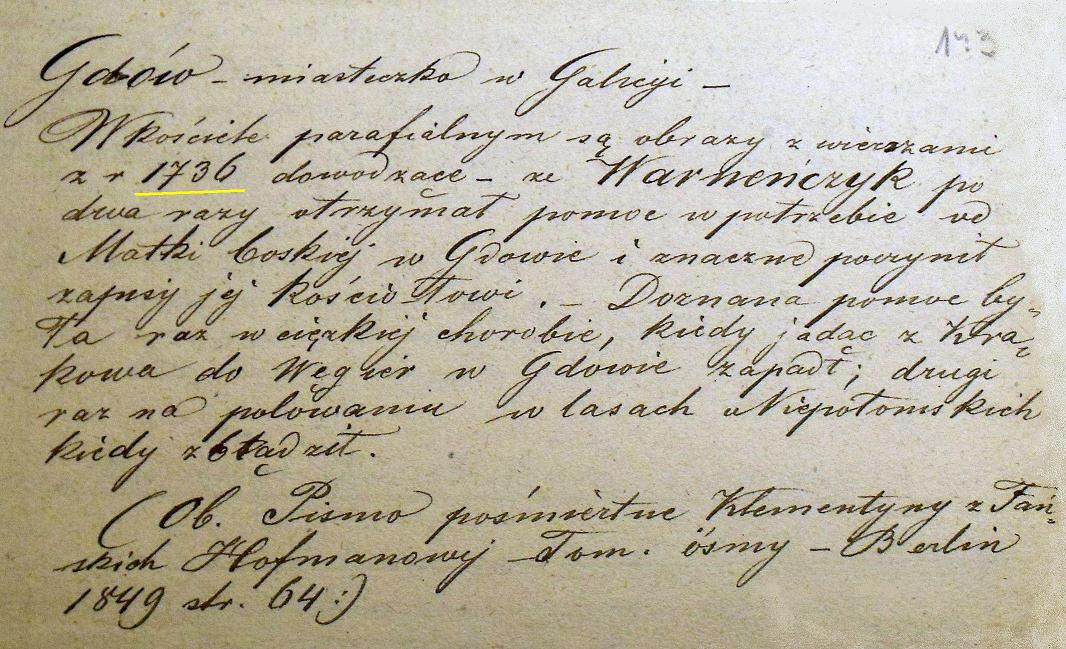 193
Gdów – miasteczko w Galicyi –
W kościele parafialnym są obrazy z wierszami
z r 1736 dowodzące – ze Warneńczyk po
dwa razy otrzymał pomoc w potrzebie od
Matki boskiej w Gdowie i znaczne poczynił
zapisy jej kościołowi. – Doznana pomoc by-
ła raz w ciężkiej chorobie, kiedy jadąc z Kra-
kowa do Węgier w Gdowie zapadł; drugi
raz na polowaniu w lasach Niepołomskich
kiedy zbłądził.
(Ob. Pismo pośmiertne Klementyny z Tań-
skich Hofmanowej Tom. ósmy – Berlin
1849 str. 64:)